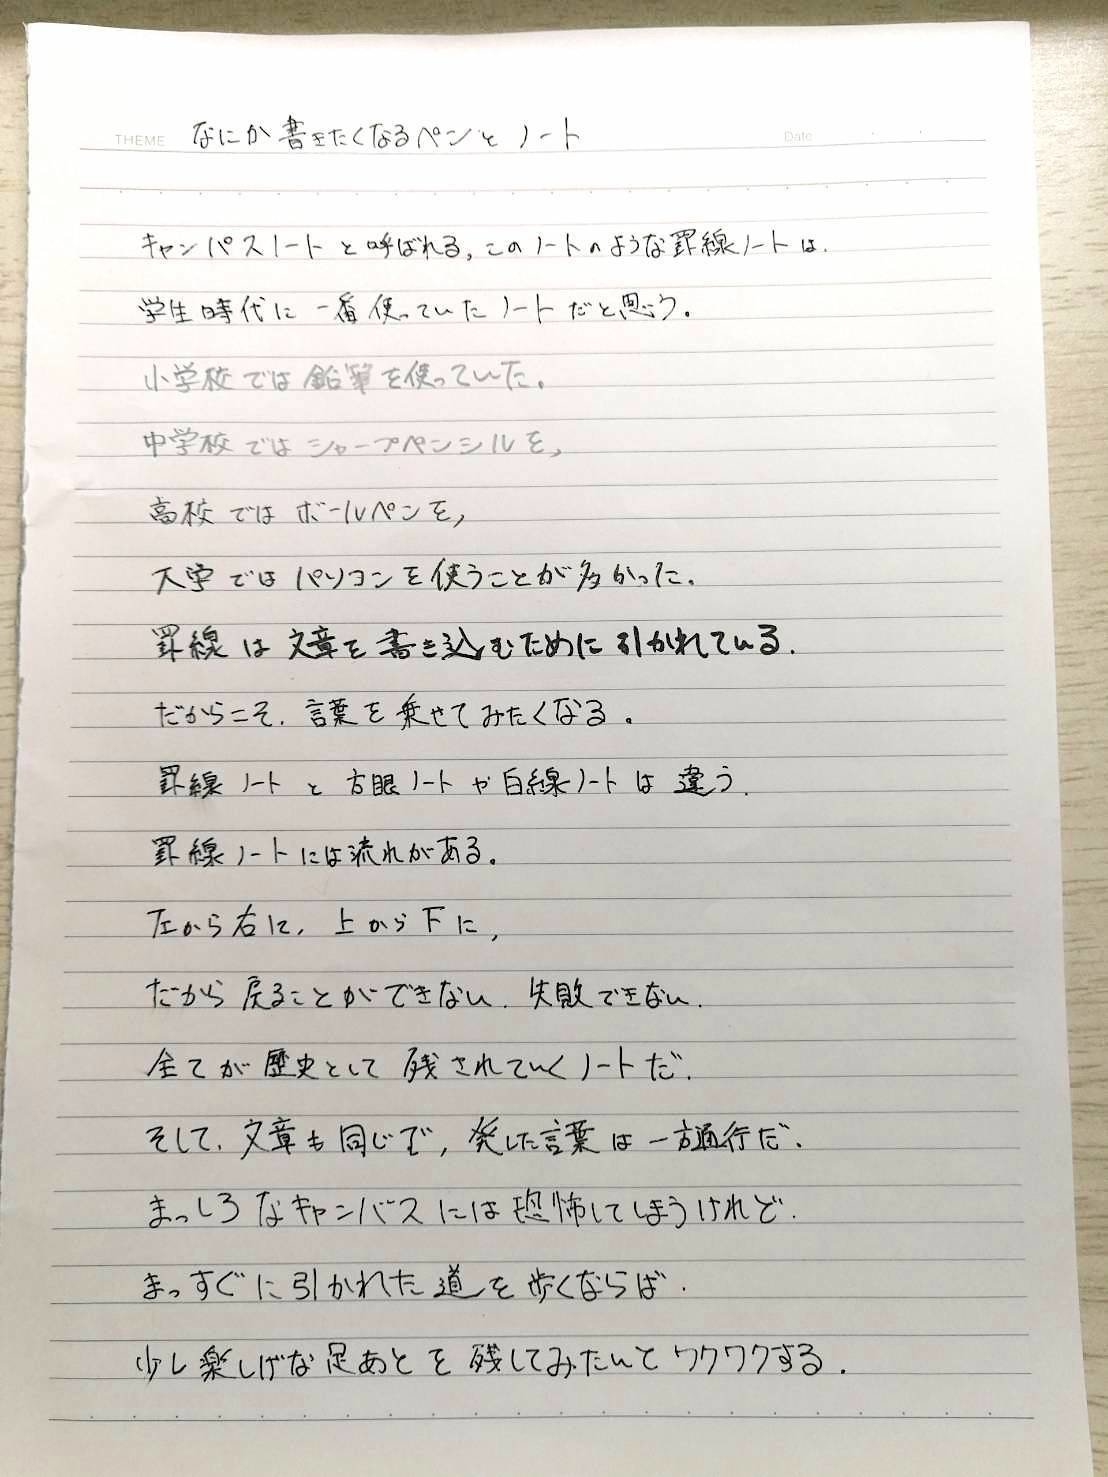 THEME なにか書きたくなるペンとノート Date
キャンパスノートと呼ばれる,このノートのような罫線ノートは.
学生時代に一番使っていたノートだと思う.
小学校では鉛筆を使っていた.
中学校ではシャープペンシルを,
高校ではボールペンを,
大学ではパソコンを使うことが多かった.
罫線は文章を書き込むために引かれている.
だからこそ.言葉を乗せてみたくなる.
罫線ノートと方眼ノートや白線ノートは違う.
罫線ノートには流れがある.
左から右に,上から下に,
だから戻ることができない.失敗できない.
全てが歴史として残されていくノートだ.
そして.文章も同じで,発した言葉は一方通行だ.
まっしろなキャンバスには恐怖してしまうけれど.
まっすぐに引かれた道を歩くならば.
少し楽しげな足あとを残してみたいとワクワクする.